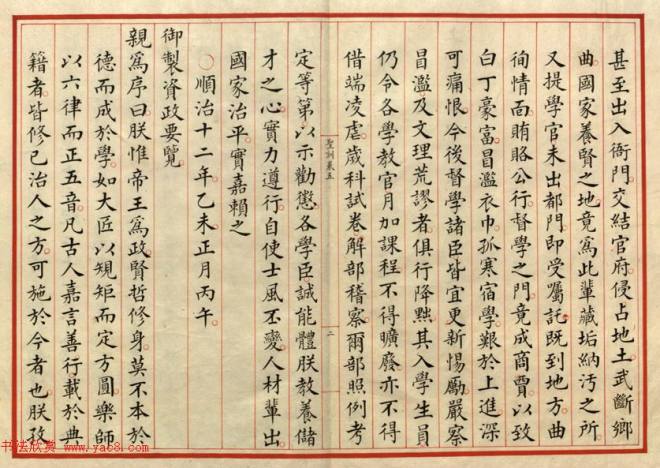 甚至出入衙門交結官府侵占地土武斷鄉
曲國家養賢之地竟為此輩藏垢納汚之所
又提學官未出都門即受囑託既到地方曲
徇情面賄賂公行督學之門竟成商賈以致
白丁豪富冒濫衣巾孤寒宿學艱於上進深
可痛恨今後督學諸臣皆宜更新惕勵嚴察
冒濫及文理荒謬者俱行降黜其入學生員
仍令各學教官月加課程不得曠廢亦不得
借端凌虐歲科試卷解部稽察爾部照例考
聖訓卷五
二
定等第以示勸懲各學臣誠能體朕教養儲
才之心實力遵行自使士風丕變人材輩出
國家治平實嘉賴之
○順治十二年乙未正月丙午
御製資政要覽
親為序曰朕惟帝王為政賢哲修身莫不本於
德而成於學如大匠以規矩而定方圓樂師
以六律而正五音凡古人嘉言善行載於典
籍者皆修己治人之方可施於今者也朕孜
书法欣赏 www.yac8.com